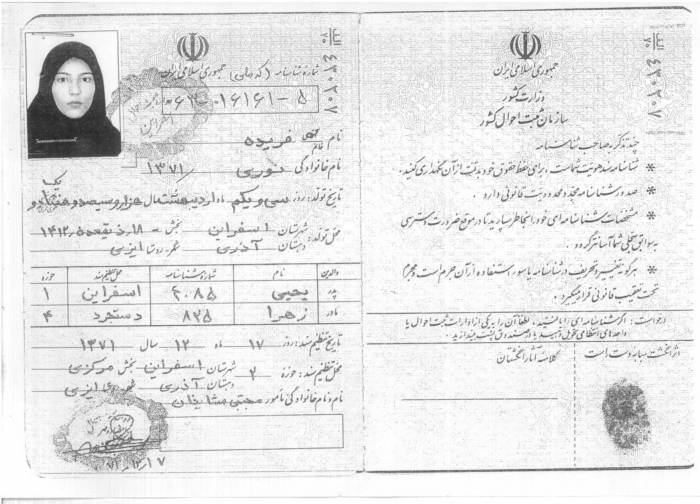 جمهوری اسلامی ایران
شماره شناسنامه (کد ملی)
۵-۰۱۶۱۶۱
نام خانم فریده
نام خانوادگی نوری
۱۳۷۱
تاریخ تولد: روز سی و یکم ماه اردیبهشت سال هزار و سیصد و هفتاد و یک
۱۸ ذیقعده ۱۴۱۲
محل تولد: شهرستان اسفراین بخش -
دهستان آذری شهر روستا ایزی
والدین نام شماره شناسنامه محل تنظیم سند حوزه
پدر یحیی ۲۰۸۵ اسفراین ۱
مادر زهرا ۸۲۵ دستجرد ۴
تاریخ تنظیم سند: روز ۱۷ ماه ۱۲ سال ۱۳۷۱
محل تنظیم سند: حوزه ۲ شهرستان اسفراین بخش مرکزی
دهستان آذری ایزی
نام و نام خانوادگی مأمور مجتبی
جمهوری اسلامی ایران
وزارت کشور
سازمان ثبت احوال کشور
چند تذکر به صاحب شناسنامه
* شناسنامه سند هویت شماست، برای حفظ حقوق خود به دقت از آن نگهداری کنید.
* صدور شناسنامه مجدد محدودیت قانونی دارد.
* مشخصات شناسنامه‌ای خود را بخاطر بسپارید تا در موقع ضرورت دسترسی
به سوابق سجلی شما آسانتر گردد.
* هرگونه تغییر و تحریف در شناسنامه یا سوء استفاده از آن جرم است و مجرم
تحت تعقیب قانونی قرار میگیرد.
درخواست: اگر شناسنامه‌ای را یافتید، لطفاً آن را به یکی از ادارات ثبت احوال یا
واحدهای انتظامی تحویل دهید یا در صندوق پست بیندازید.
اثر انگشت سبابه دست است
کلاسه آثار انگشتان